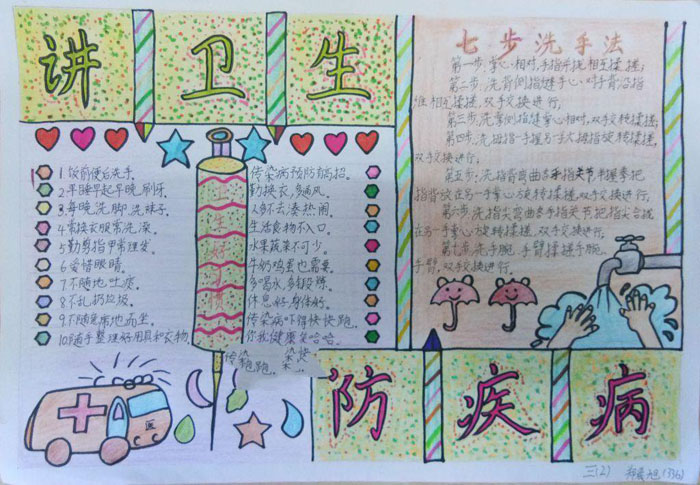 讲卫生
1.饭前便后洗手.
2.早睡早起早晚刷牙.
3.每晚洗脚洗袜子.
4.常换衣服常洗澡.
5.勤剪指甲常理发.
6.爱惜眼睛.
7.不随地吐痰.
8.不乱扔垃圾.
9.不随便席地而坐.
10.随手整理好用具和衣物.
卫生好习惯
传染病预防有招.
勤换衣,多通风.
人多不去凑热闹.
生活食物不入口.
水果蔬菜不可少.
牛奶鸡蛋也需要.
多喝水,多锻炼.
休息好,身体好.
传染病吓得快快跑.
你我健康笑哈哈.
七步洗手法
第一步:掌心相对,手指并拢相互揉搓;
第二步:洗背侧指缝手心对手背沿指
缝相互揉搓,双手交换进行;
第三步:洗掌侧指缝掌心相对,双手交转揉搓;
第四步:洗拇指一手握另一手大拇指旋转揉搓,
双手交换进行;
第五步:洗指背弯曲各手指关节半握拳把
指背放在另一手掌心旋转揉搓,双手交换进行;
第六步:洗指尖弯曲各手指关节把指尖合拢
在另一手掌心旋转揉搓,双手交换进行;
第七步:洗手腕、手臂揉搓手腕、
手臂,双手交换进行.
医
防疾病
三(2)